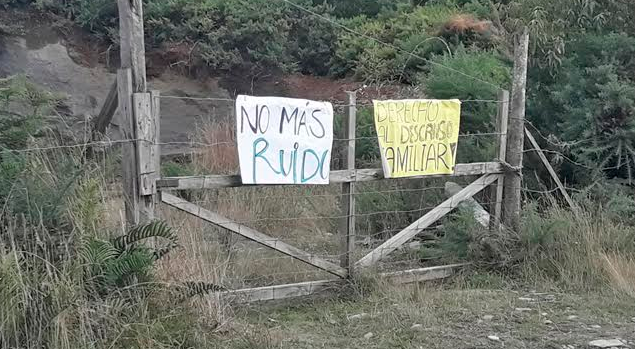 NO MÁS
RUIDO
DERECHO
AL DESCANSO
FAMILIAR